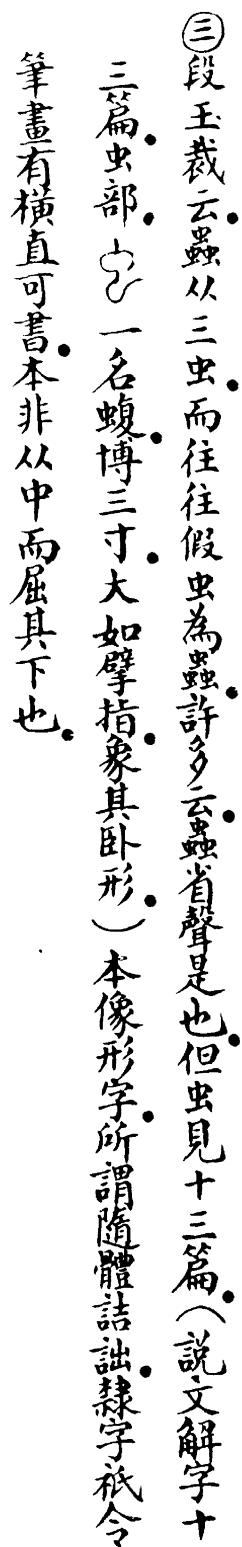 ㊂段玉裁云。蟲从三虫。而往往假虫為蟲。許多云。蟲省聲是也。但虫見十三篇。（說文解字十
三篇。虫部。一名蝮。博三寸。大如擘指。象其卧形。）本像形字。所謂隨體詰詘。隸字祇令
筆畫有橫直可書。本非从中而屈其下也。